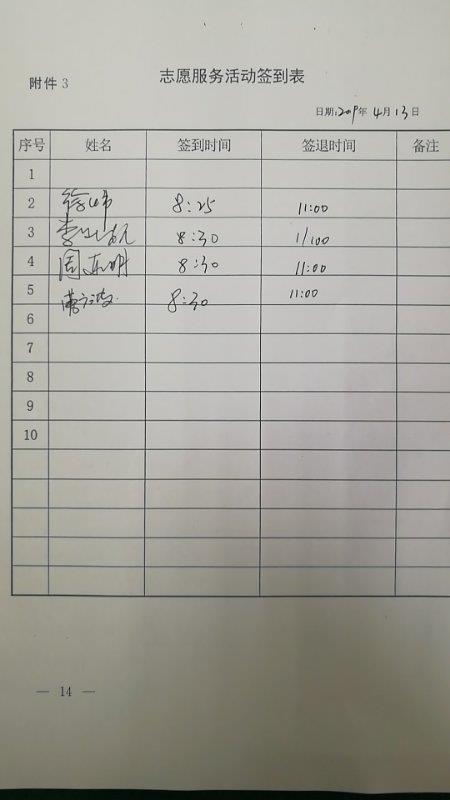 附件 3
志愿服务活动签到表
日期:2019年 4月 13日
序号 姓名 签到时间 签退时间 备注
1
2 8:25 11:00
3 8:30 1/100
4 周 明 8:30 11:00
5 8:30 11:00
6
7
8
9
10
— 14 —